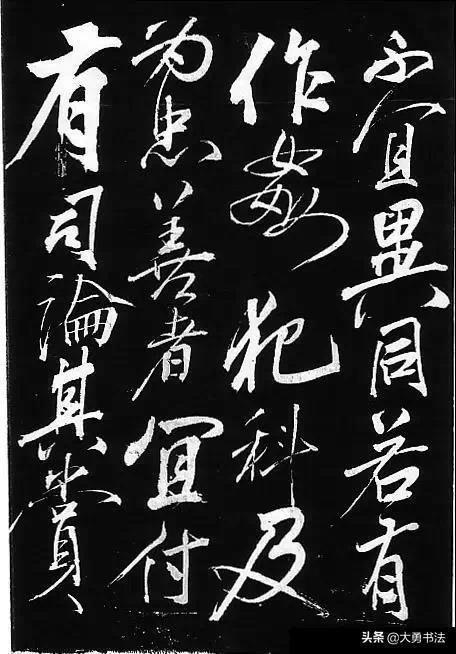 不宜異同若有
作姦犯科及
為忠善者宜付
有司論其賞
头条 @大勇书法